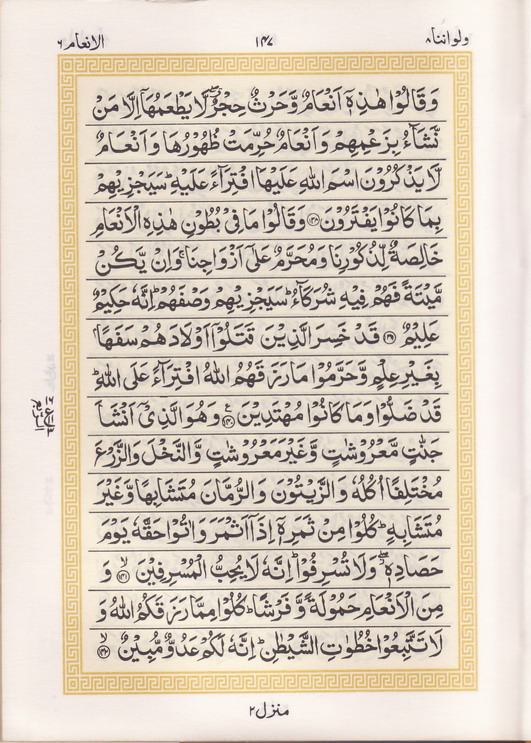 ولواننا ۸
۱۴۷
الانعام ۶
وَقَالُوْا هٰذِهٖۤ اَنْعَامٌ وَّحَرْثٌ حِجْرٌ ۖۗ لَّا يَطْعَمُهَاۤ اِلَّا مَنْ
نَّشَآءُ بِزَعْمِهِمْ وَاَنْعَامٌ حُرِّمَتْ ظُهُوْرُهَا وَاَنْعَامٌ
لَّا يَذْكُرُوْنَ اسْمَ اللّٰهِ عَلَيْهَا افْتِرَآءً عَلَيْهِ ؕ سَيَجْزِيْهِمْ
بِمَا كَانُوْا يَفْتَرُوْنَ ﴿۱۳۸﴾ وَقَالُوْا مَا فِیْ بُطُوْنِ هٰذِهِ الْاَنْعَامِ
خَالِصَةٌ لِّذُكُوْرِنَا وَمُحَرَّمٌ عَلٰۤی اَزْوَاجِنَا ۚ وَاِنْ يَّكُنْ
مَّيْتَةً فَهُمْ فِيْهِ شُرَكَآءُ ؕ سَيَجْزِيْهِمْ وَصْفَهُمْ ؕ اِنَّهٗ حَكِيْمٌ
عَلِيْمٌ ﴿۱۳۹﴾ قَدْ خَسِرَ الَّذِيْنَ قَتَلُوْۤا اَوْلَادَهُمْ سَفَهًۢا
بِغَيْرِ عِلْمٍ وَّحَرَّمُوْا مَا رَزَقَهُمُ اللّٰهُ افْتِرَآءً عَلَی اللّٰهِ ؕ
قَدْ ضَلُّوْا وَمَا كَانُوْا مُهْتَدِيْنَ ﴿۱۴۰﴾ ع وَهُوَ الَّذِیْۤ اَنْشَاَ
جَنّٰتٍ مَّعْرُوْشٰتٍ وَّغَيْرَ مَعْرُوْشٰتٍ وَّالنَّخْلَ وَالزَّرْعَ
مُخْتَلِفًا اُكُلُهٗ وَالزَّيْتُوْنَ وَالرُّمَّانَ مُتَشَابِهًا وَّغَيْرَ
مُتَشَابِهٍ ؕ كُلُوْا مِنْ ثَمَرِهٖۤ اِذَاۤ اَثْمَرَ وَاٰتُوْا حَقَّهٗ يَوْمَ
حَصَادِهٖ ۖؗ وَلَا تُسْرِفُوْا ؕ اِنَّهٗ لَا يُحِبُّ الْمُسْرِفِيْنَ ﴿۱۴۱﴾ ۙ وَ
مِنَ الْاَنْعَامِ حَمُوْلَةً وَّفَرْشًا ؕ كُلُوْا مِمَّا رَزَقَكُمُ اللّٰهُ وَ
لَا تَتَّبِعُوْا خُطُوٰتِ الشَّيْطٰنِ ؕ اِنَّهٗ لَكُمْ عَدُوٌّ مُّبِيْنٌ ﴿۱۴۲﴾ ۙ
منزل ۲